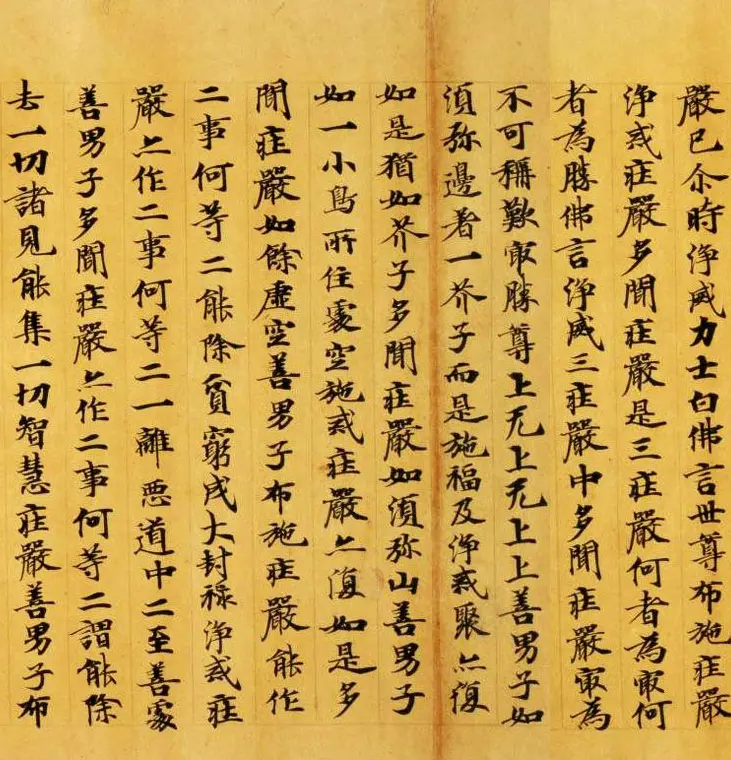 嚴已尒時淨威力士白佛言世尊布施莊嚴
淨戒莊嚴多聞莊嚴是三莊嚴何者為冣何
者為勝佛言淨威三莊嚴中多聞莊嚴冣為
不可稱歎冣勝尊上无上无上上善男子如
須弥邊著一芥子而是施福及淨戒聚亦復
如是猶如芥子多聞莊嚴如須弥山善男子
如一小鳥所住處空施戒莊嚴亦復如是多
聞莊嚴如餘虛空善男子布施莊嚴能作
二事何等二能除貧窮成大封祿淨戒莊
嚴亦作二事何等二一離惡道中二至善處
善男子多聞莊嚴亦作二事何等二謂能除
去一切諸見能集一切智慧莊嚴善男子布